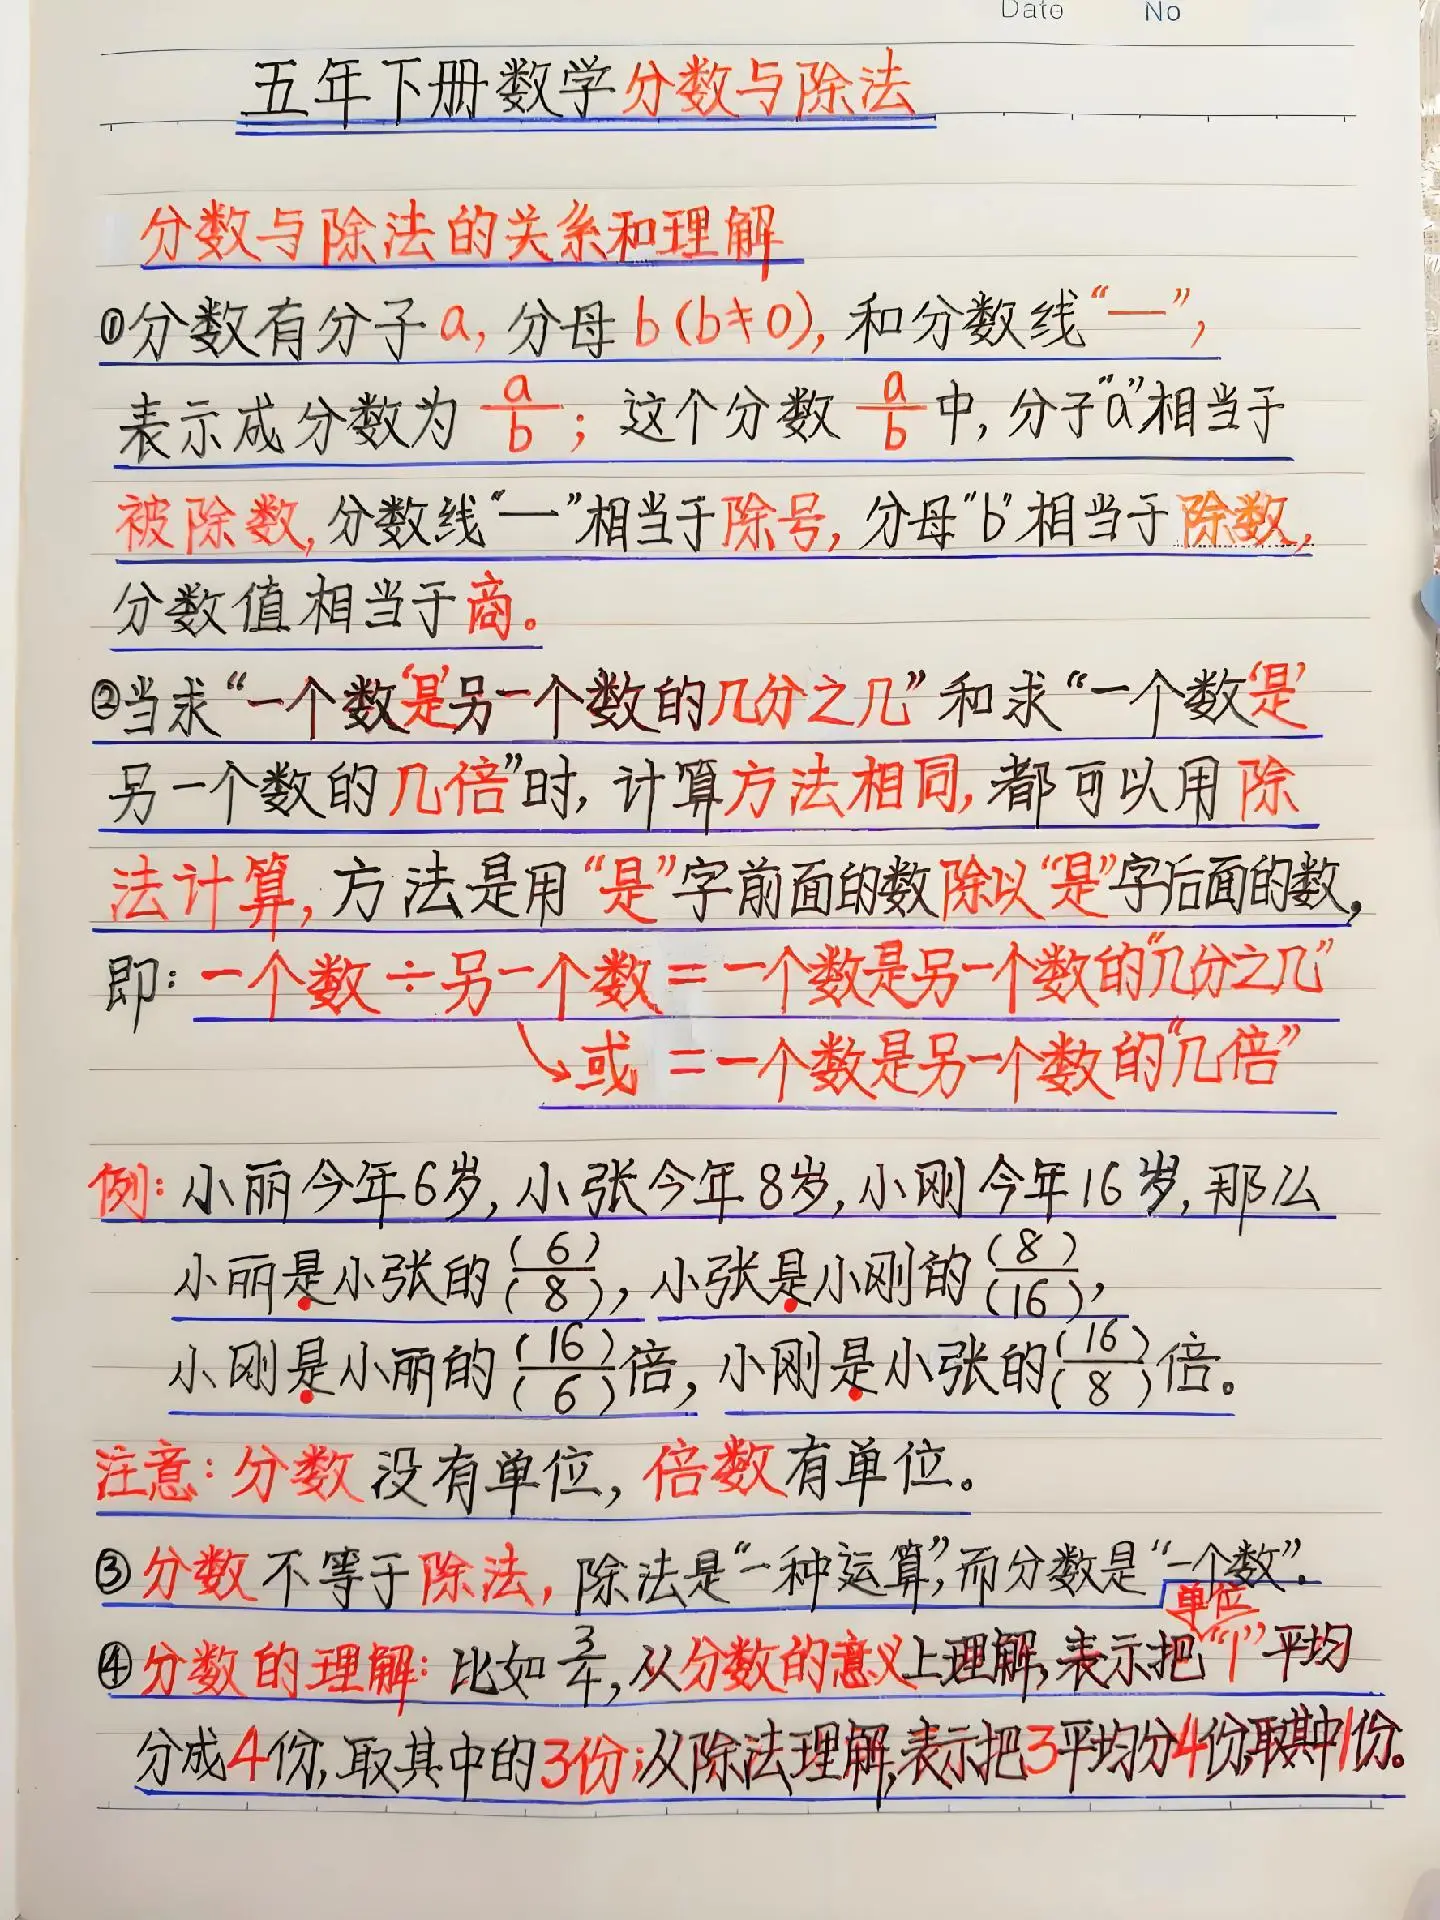 Date No
五年下册数学分数与除法
分数与除法的关系和理解
①分数有分子a,分母b(b≠0),和分数线“—”,
表示成分数为a/b;这个分数a/b中,分子“a”相当于
被除数,分数线“—”相当于除号,分母“b”相当于除数,
分数值相当于商。
②当求“一个数‘是’另一个数的几分之几”和求“一个数‘是’
另一个数的几倍”时,计算方法相同,都可以用除
法计算,方法是用“是”字前面的数除以“是”字后面的数,
即:一个数÷另一个数=一个数是另一个数的“几分之几”
或=一个数是另一个数的“几倍”
例:小丽今年6岁,小张今年8岁,小刚今年16岁,那么
小丽是小张的(6)/(8),小张是小刚的(8)/(16),
小刚是小丽的(16)/(6)倍,小刚是小张的(16)/(8)倍。
注意:分数没有单位,倍数有单位。
③分数不等于除法,除法是“一种运算”,而分数是“一个数”.
单位
④分数的理解:比如3/4,从分数的意义上理解,表示把“1”平均
分成4份,取其中的3份;从除法理解,表示把3平均分4份,取其中1份。